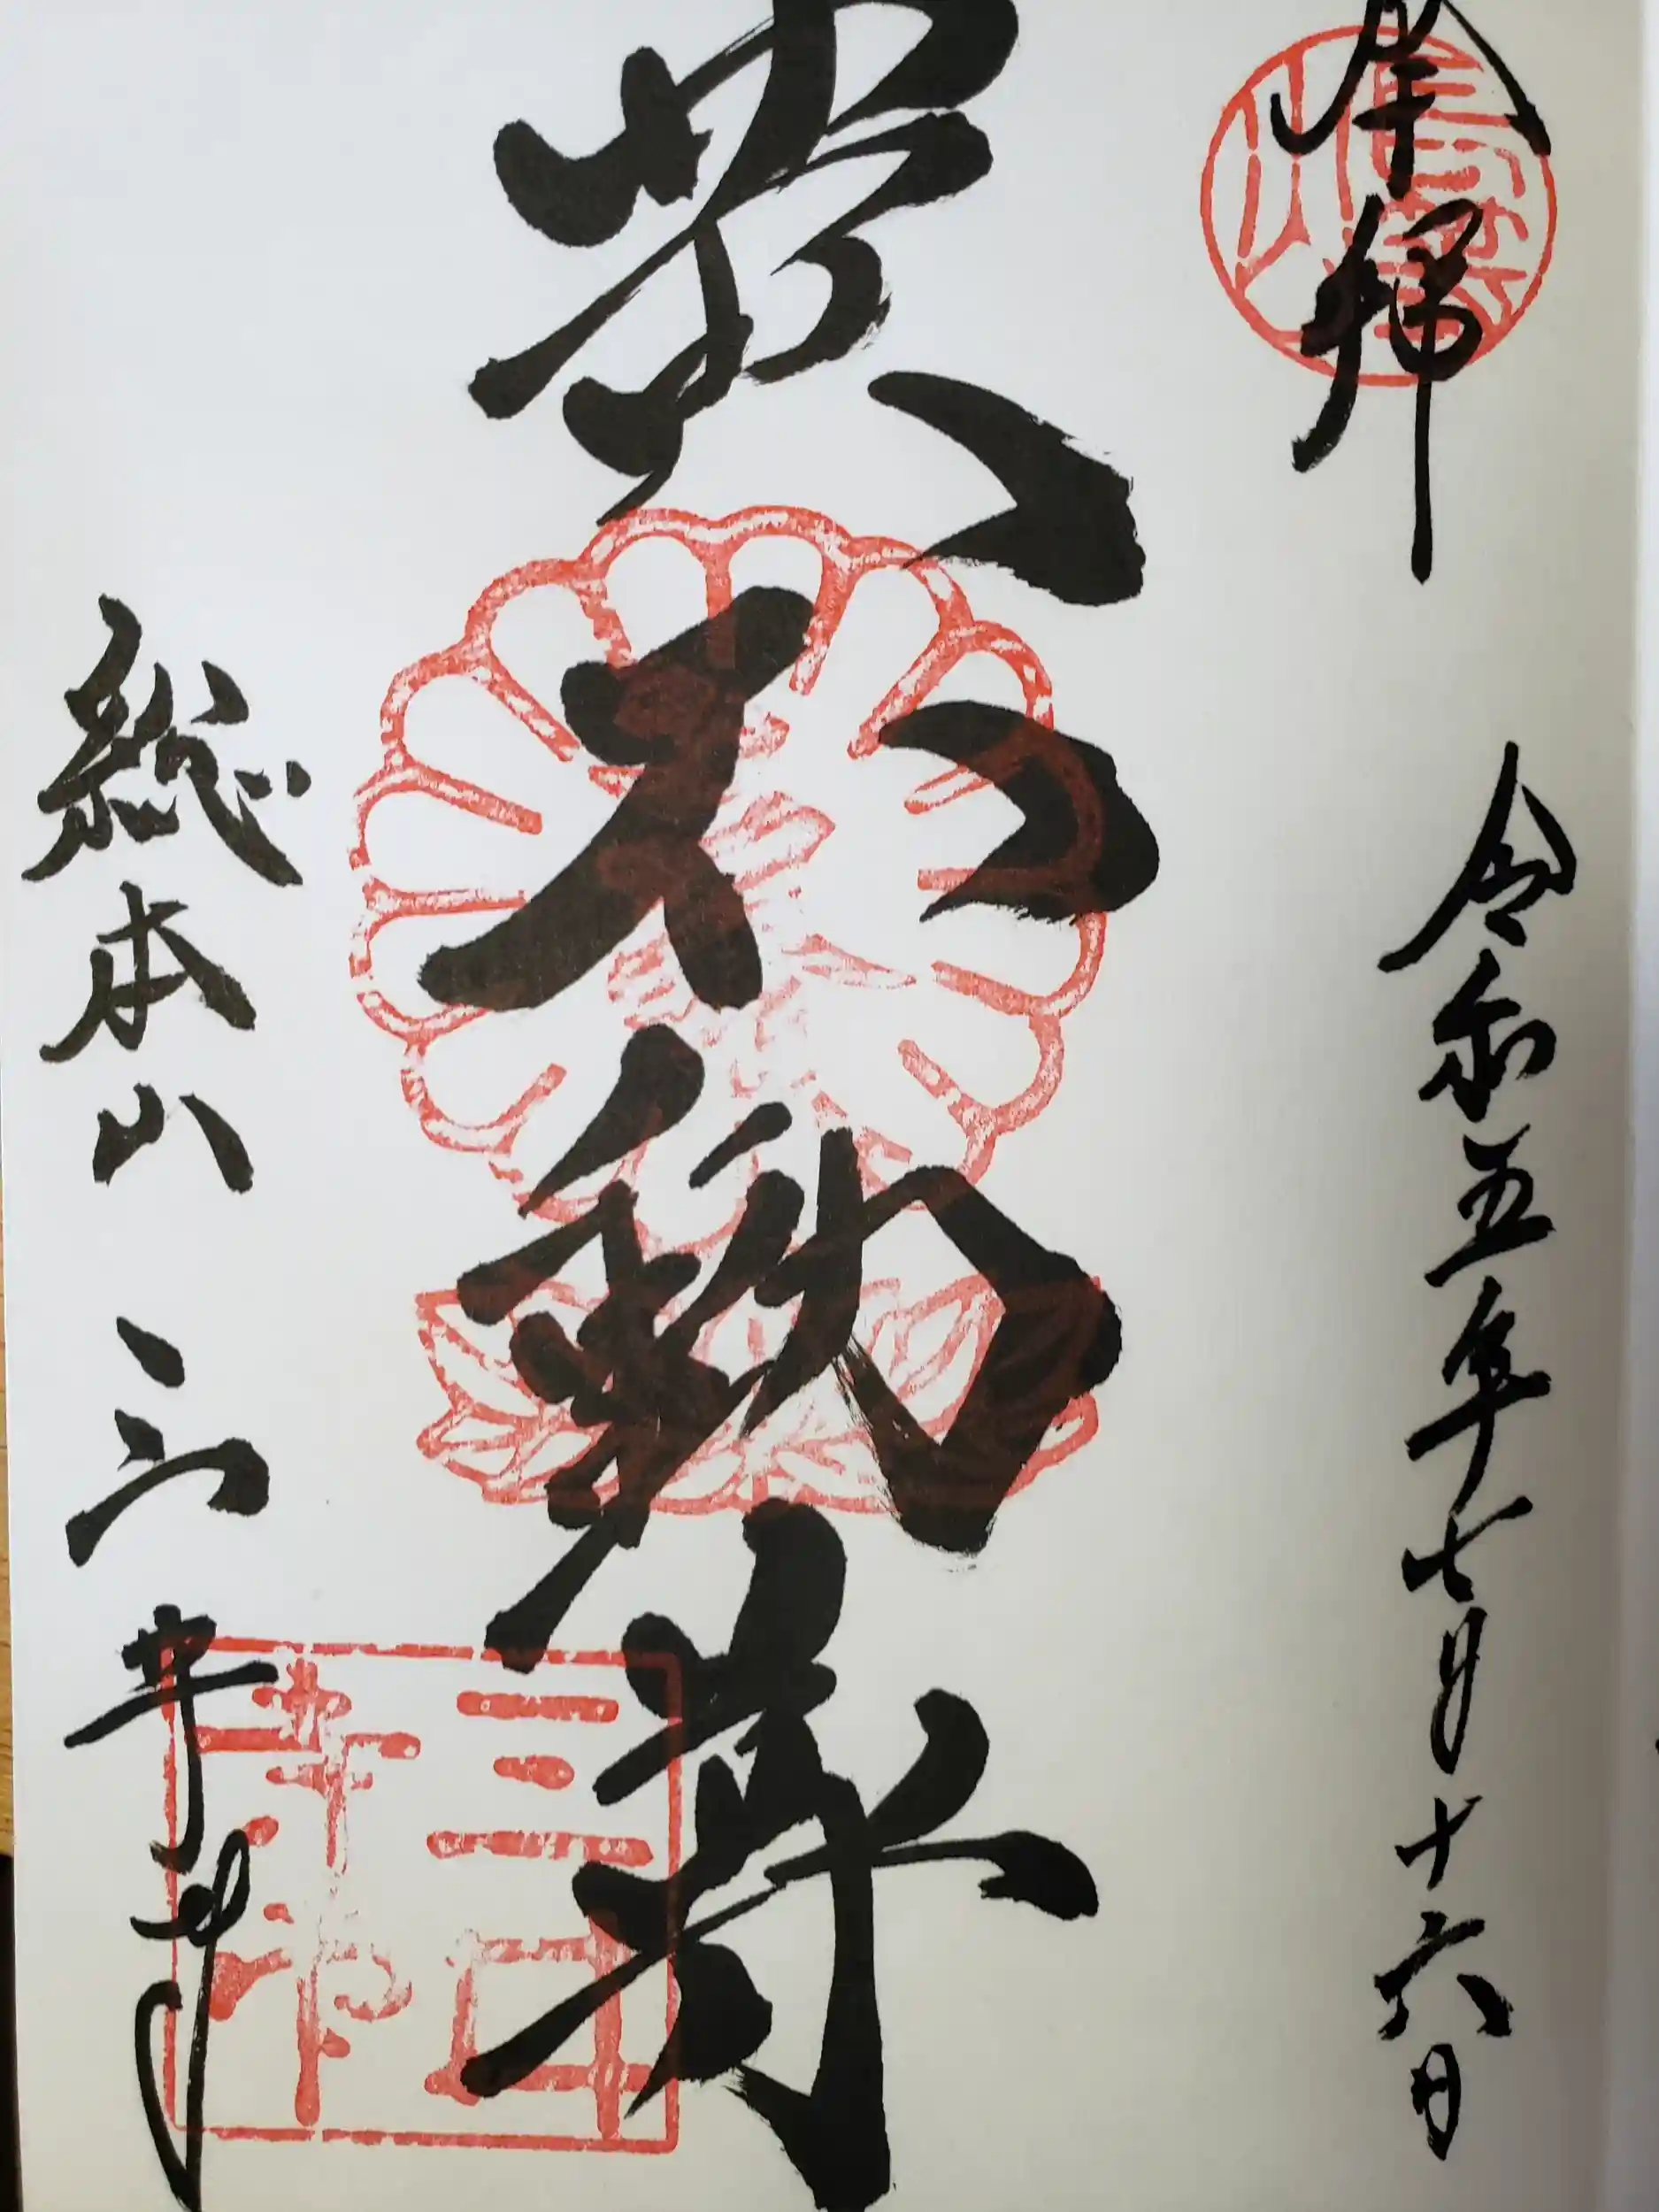 奉拝
令和五年七月十六日
黄不動尊
総本山 三井寺